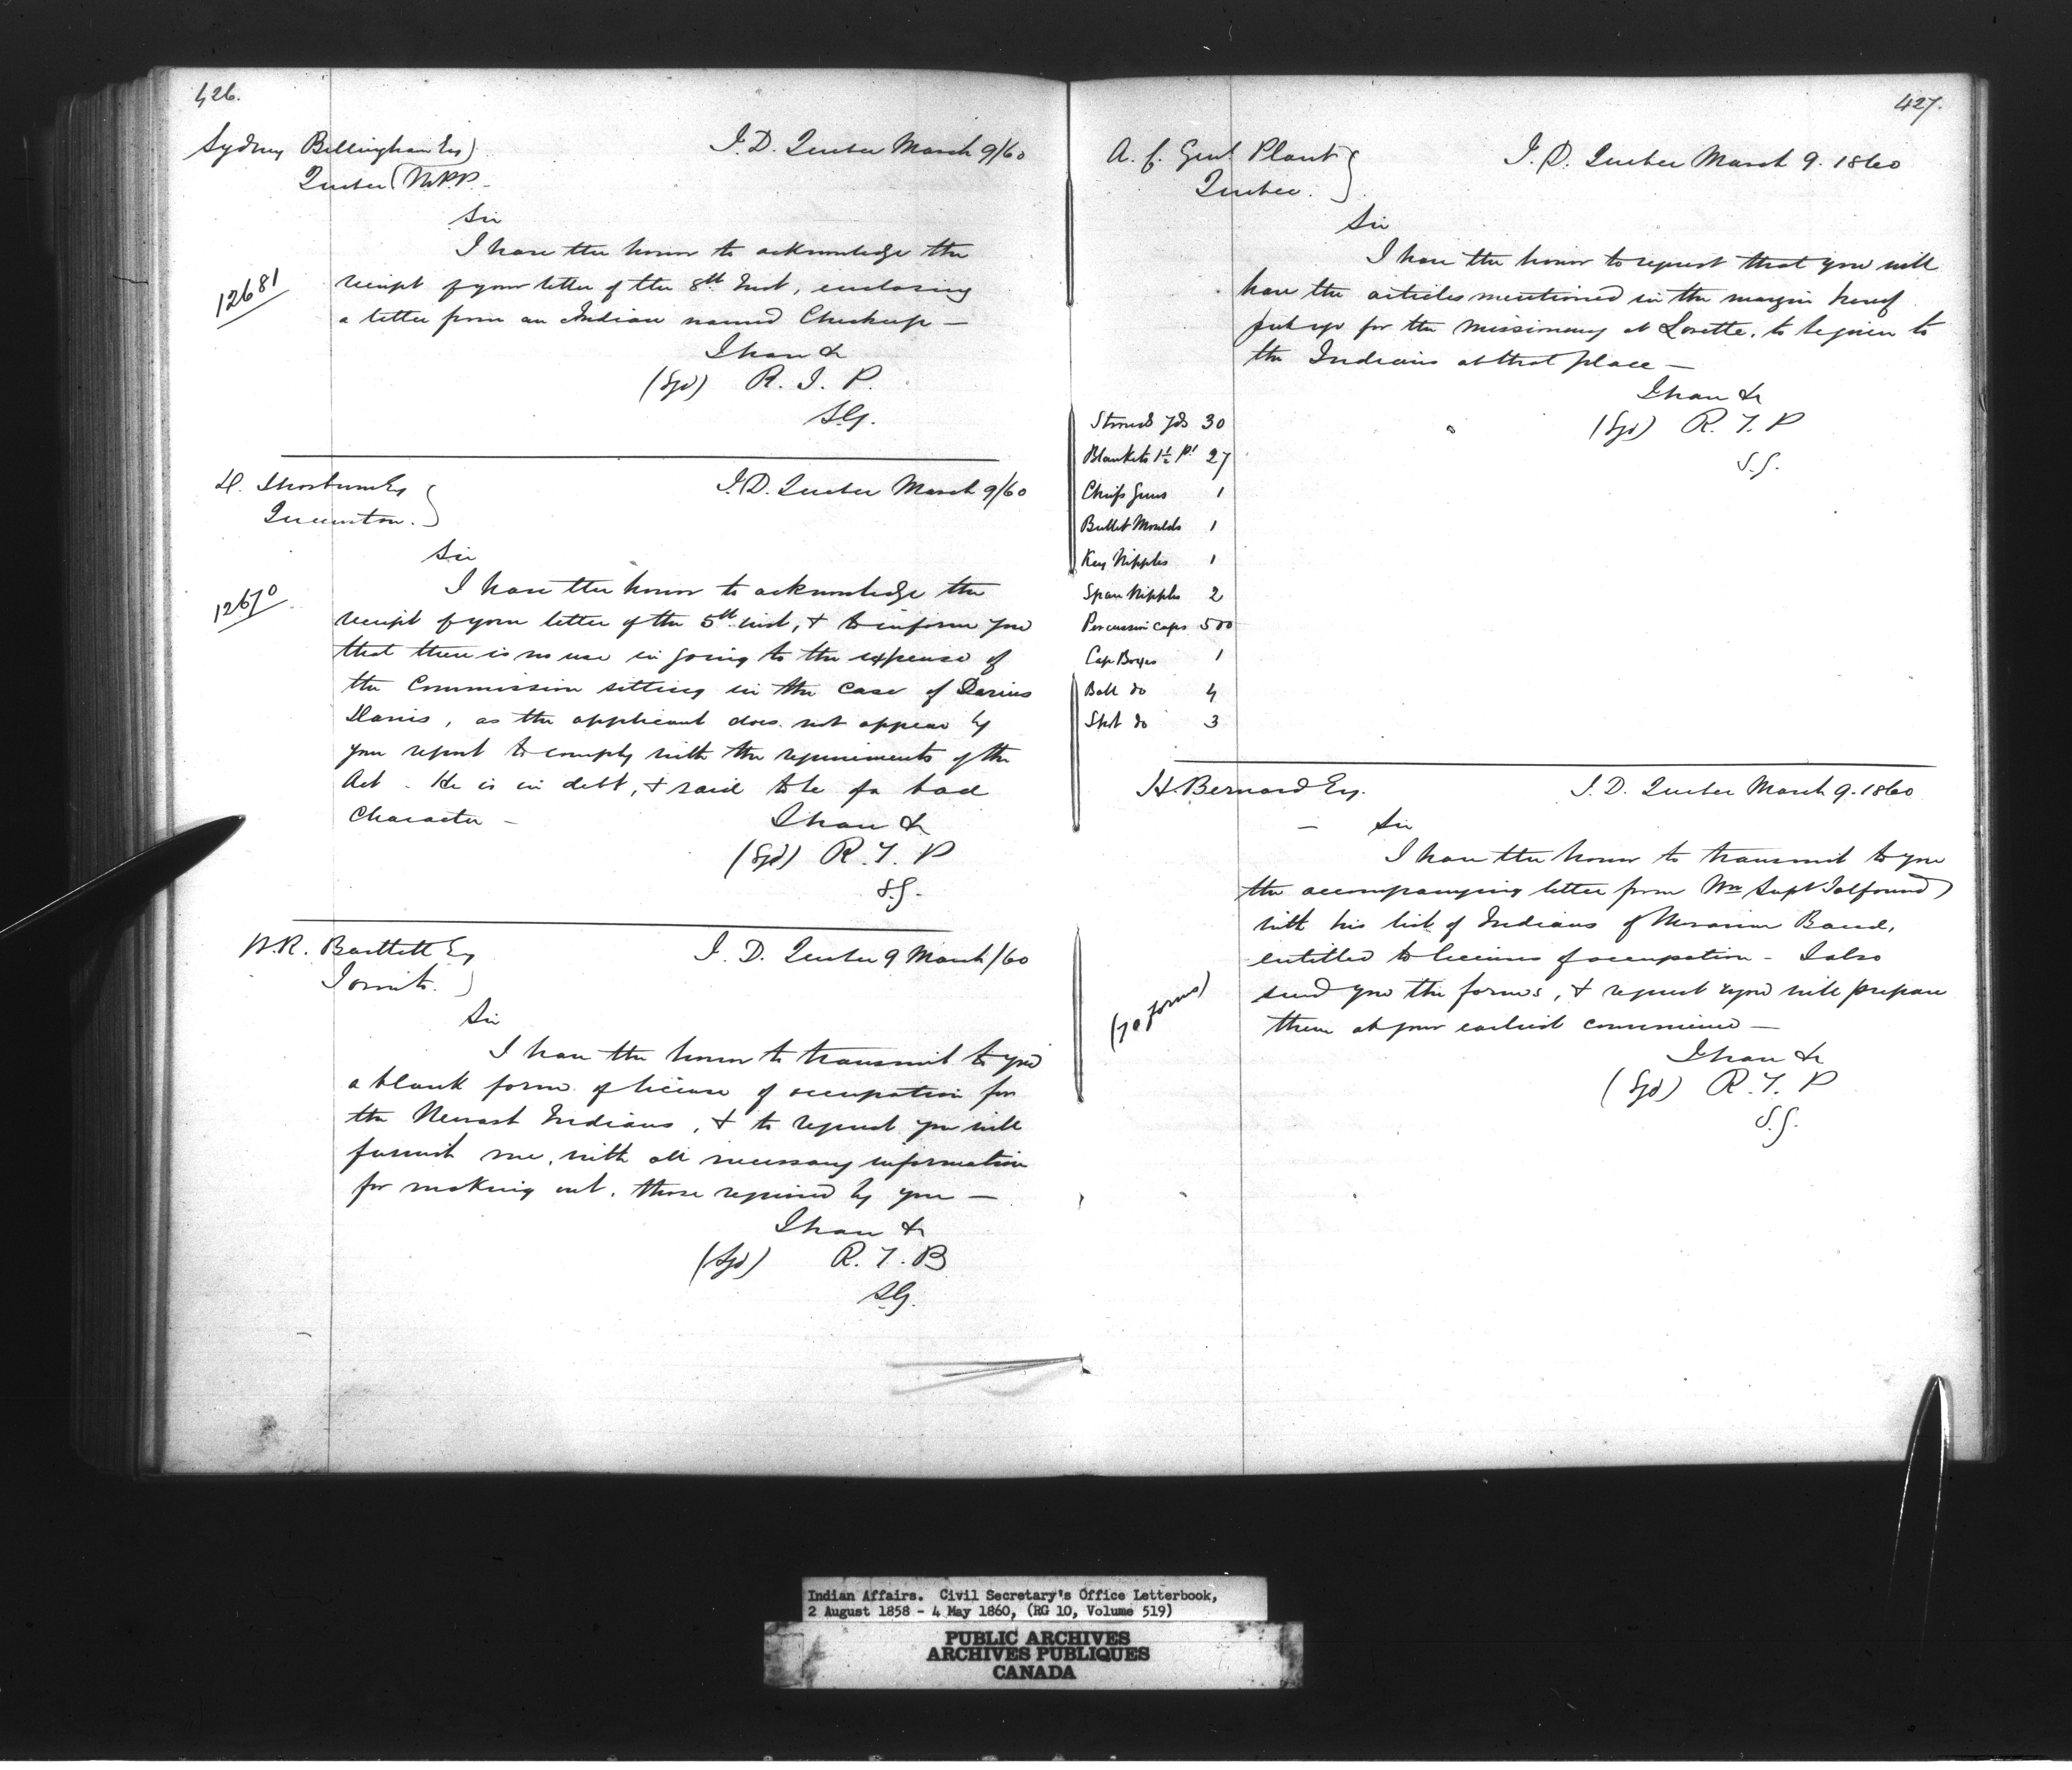 426.
Sydney Bellingham Esq)
Quebec (M.P.P.
I. D. Quebec March 9/60
Sir
I have the honor to acknowledge the
12681
receipt of your letter of the 8th Inst, enclosing
a letter from an Indian named —
I have &c
(Sgd) R. T. P.
S.G.
D. Thorburn Esq
Queenston.
I. D. Quebec March 9/60
Sir
I have the honor to acknowledge the
12670
receipt of your letter of the 5th inst, & to inform you
that there is no use in going to the expense of
the Commission sitting in the case of Darius
Davis, as the applicant does not appear by
your report to comply with the requirements of the
Act - He is in debt, & said to be of a bad
Character -
I have &c
(Sgd) R. T. P
S.G.
W.R. Bartlett Esq
Toronto.
I. D. Quebec 9 March/60
Sir
I have the honor to transmit to you
a blank form of license of occupation for
the Newash Indians, & to request you will
furnish me, with all necessary information
for making out, those required by you —
I have &c
(Sgd) R. T. B
S.G.
427.
A. C. Genl Plant
Quebec.
I. D. Quebec March 9. 1860
Sir
I have the honor to request that you will
have the articles mentioned in the margin hereof
put up for the Missionary at Lorette, to be given to
the Indians at that place —
I have &c
(Sgd) R. T. P
S.G.
Strouds yds 30
Blankets 1½ pt 27
Chiefs Guns 1
Bullet Moulds 1
Key Nipples 1
Spare Nipples 2
Percussion Caps 500
Cap Boxes 1
Ball do 4
Shot do 3
H Bernard Esq.
I. D. Quebec March 9. 1860
— Sir
I have the honor to transmit to you
the accompanying letter from Supt Talfourd
with his list of Indians of Moravian Band,
entitled to licenses of occupation - I also
(70 forms)
send you the forms, & request you will prepare
them at your earliest convenience —
I have &c
(Sgd) R. T. P
S.G.
Indian Affairs. Civil Secretary's Office Letterbook,
2 August 1858 - 4 May 1860, (RG 10, Volume 519)
PUBLIC ARCHIVES
ARCHIVES PUBLIQUES
CANADA